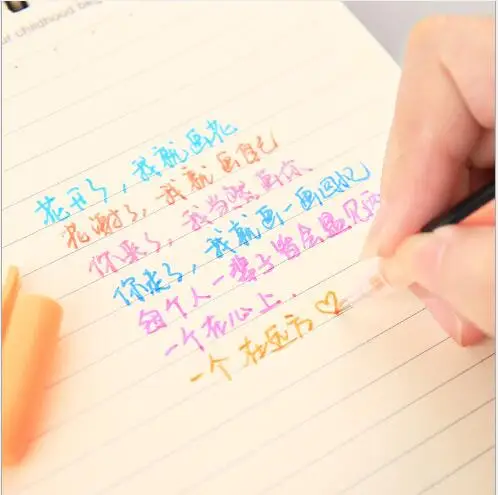 ut childhood be
花开了，我就画花
花谢了，我就画自己
你来了，我当然画你
你走了，我就画一画回忆
每个人一辈子皆会遇见两
一个在心上．
一个在远方♡